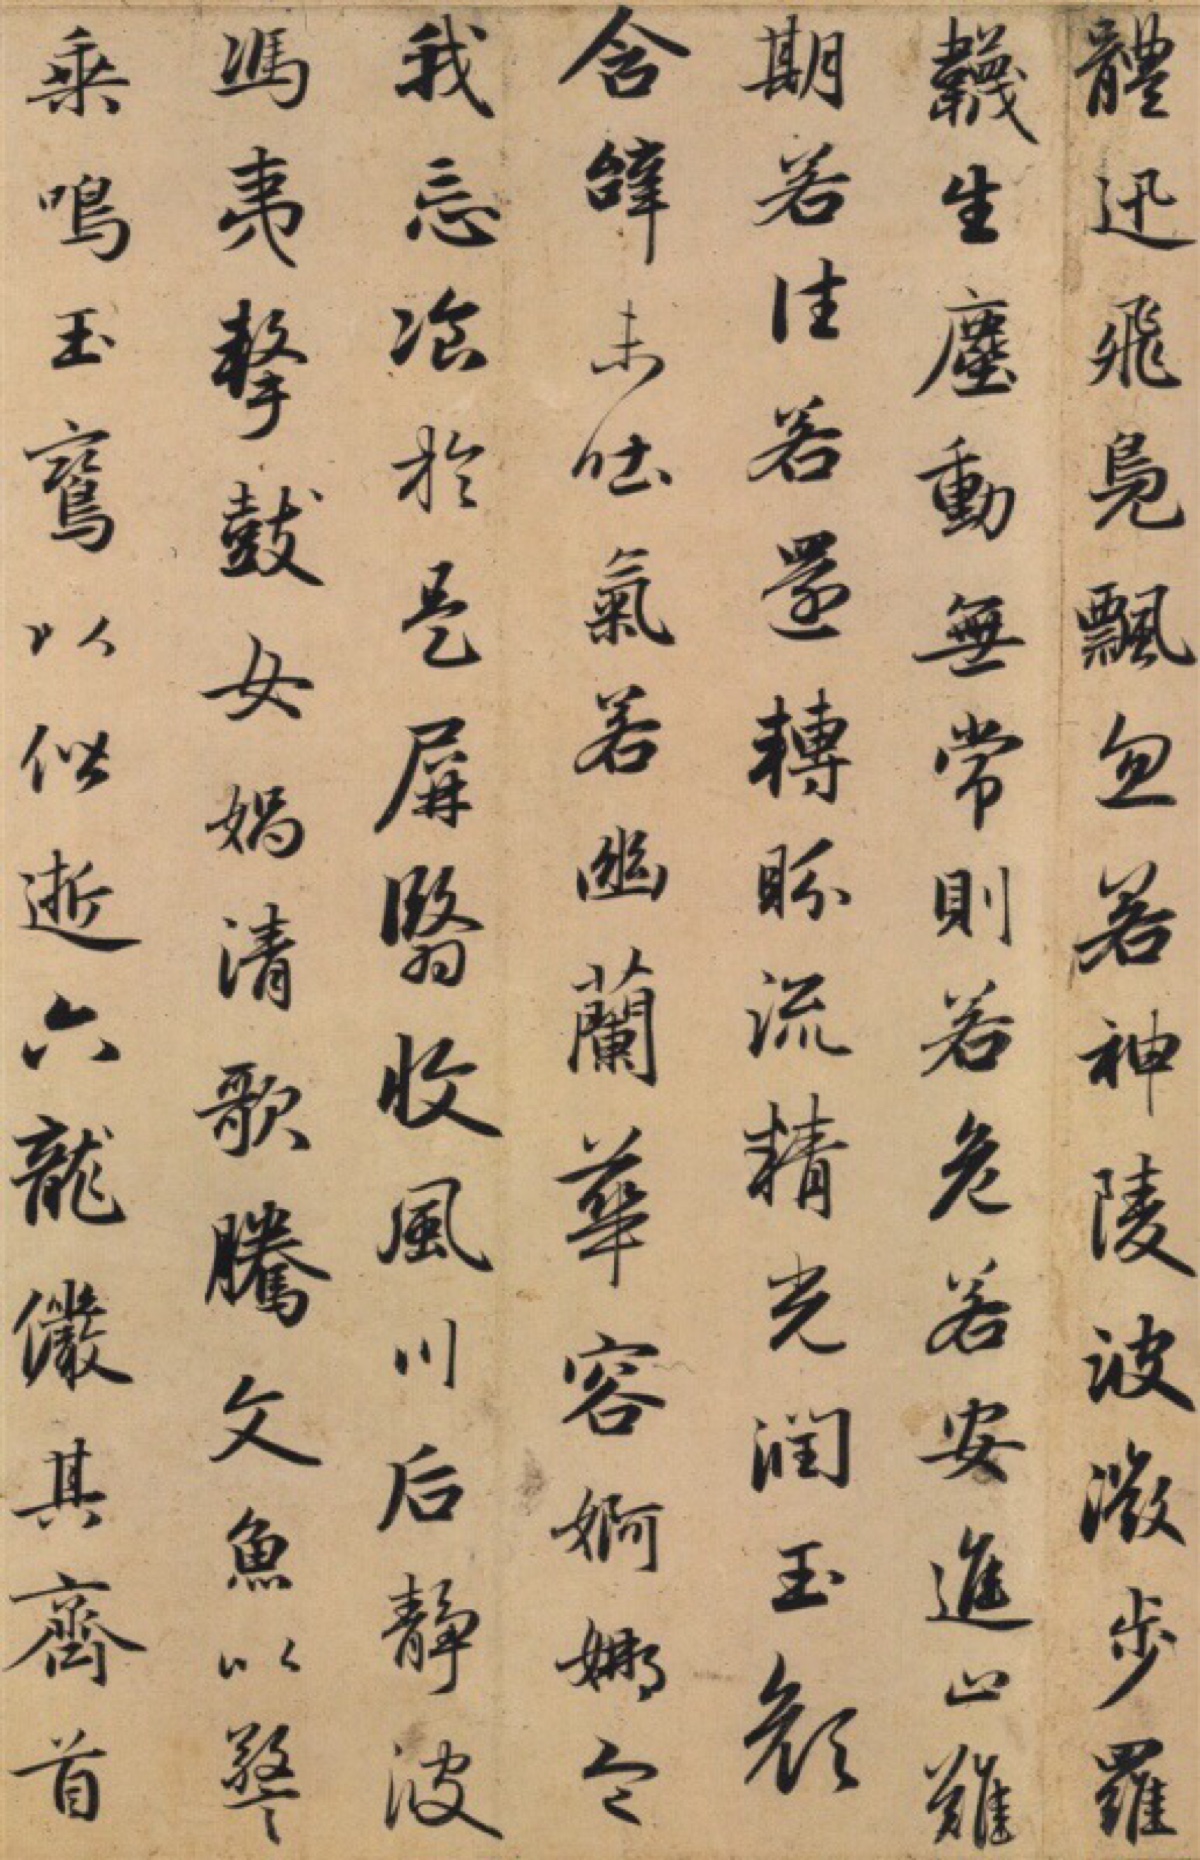 體迅飛鳧飄忽若神陵波微步羅
韈生塵動無常則若危若安進止難
期若往若還轉眄流精光潤玉顏
含辭未吐氣若幽蘭華容婀娜令
我忘飡於是屏翳收風川后靜波
馮夷擊鼓女媧清歌騰文魚以警
乘鳴玉鸞以偕逝六龍儼其齊首